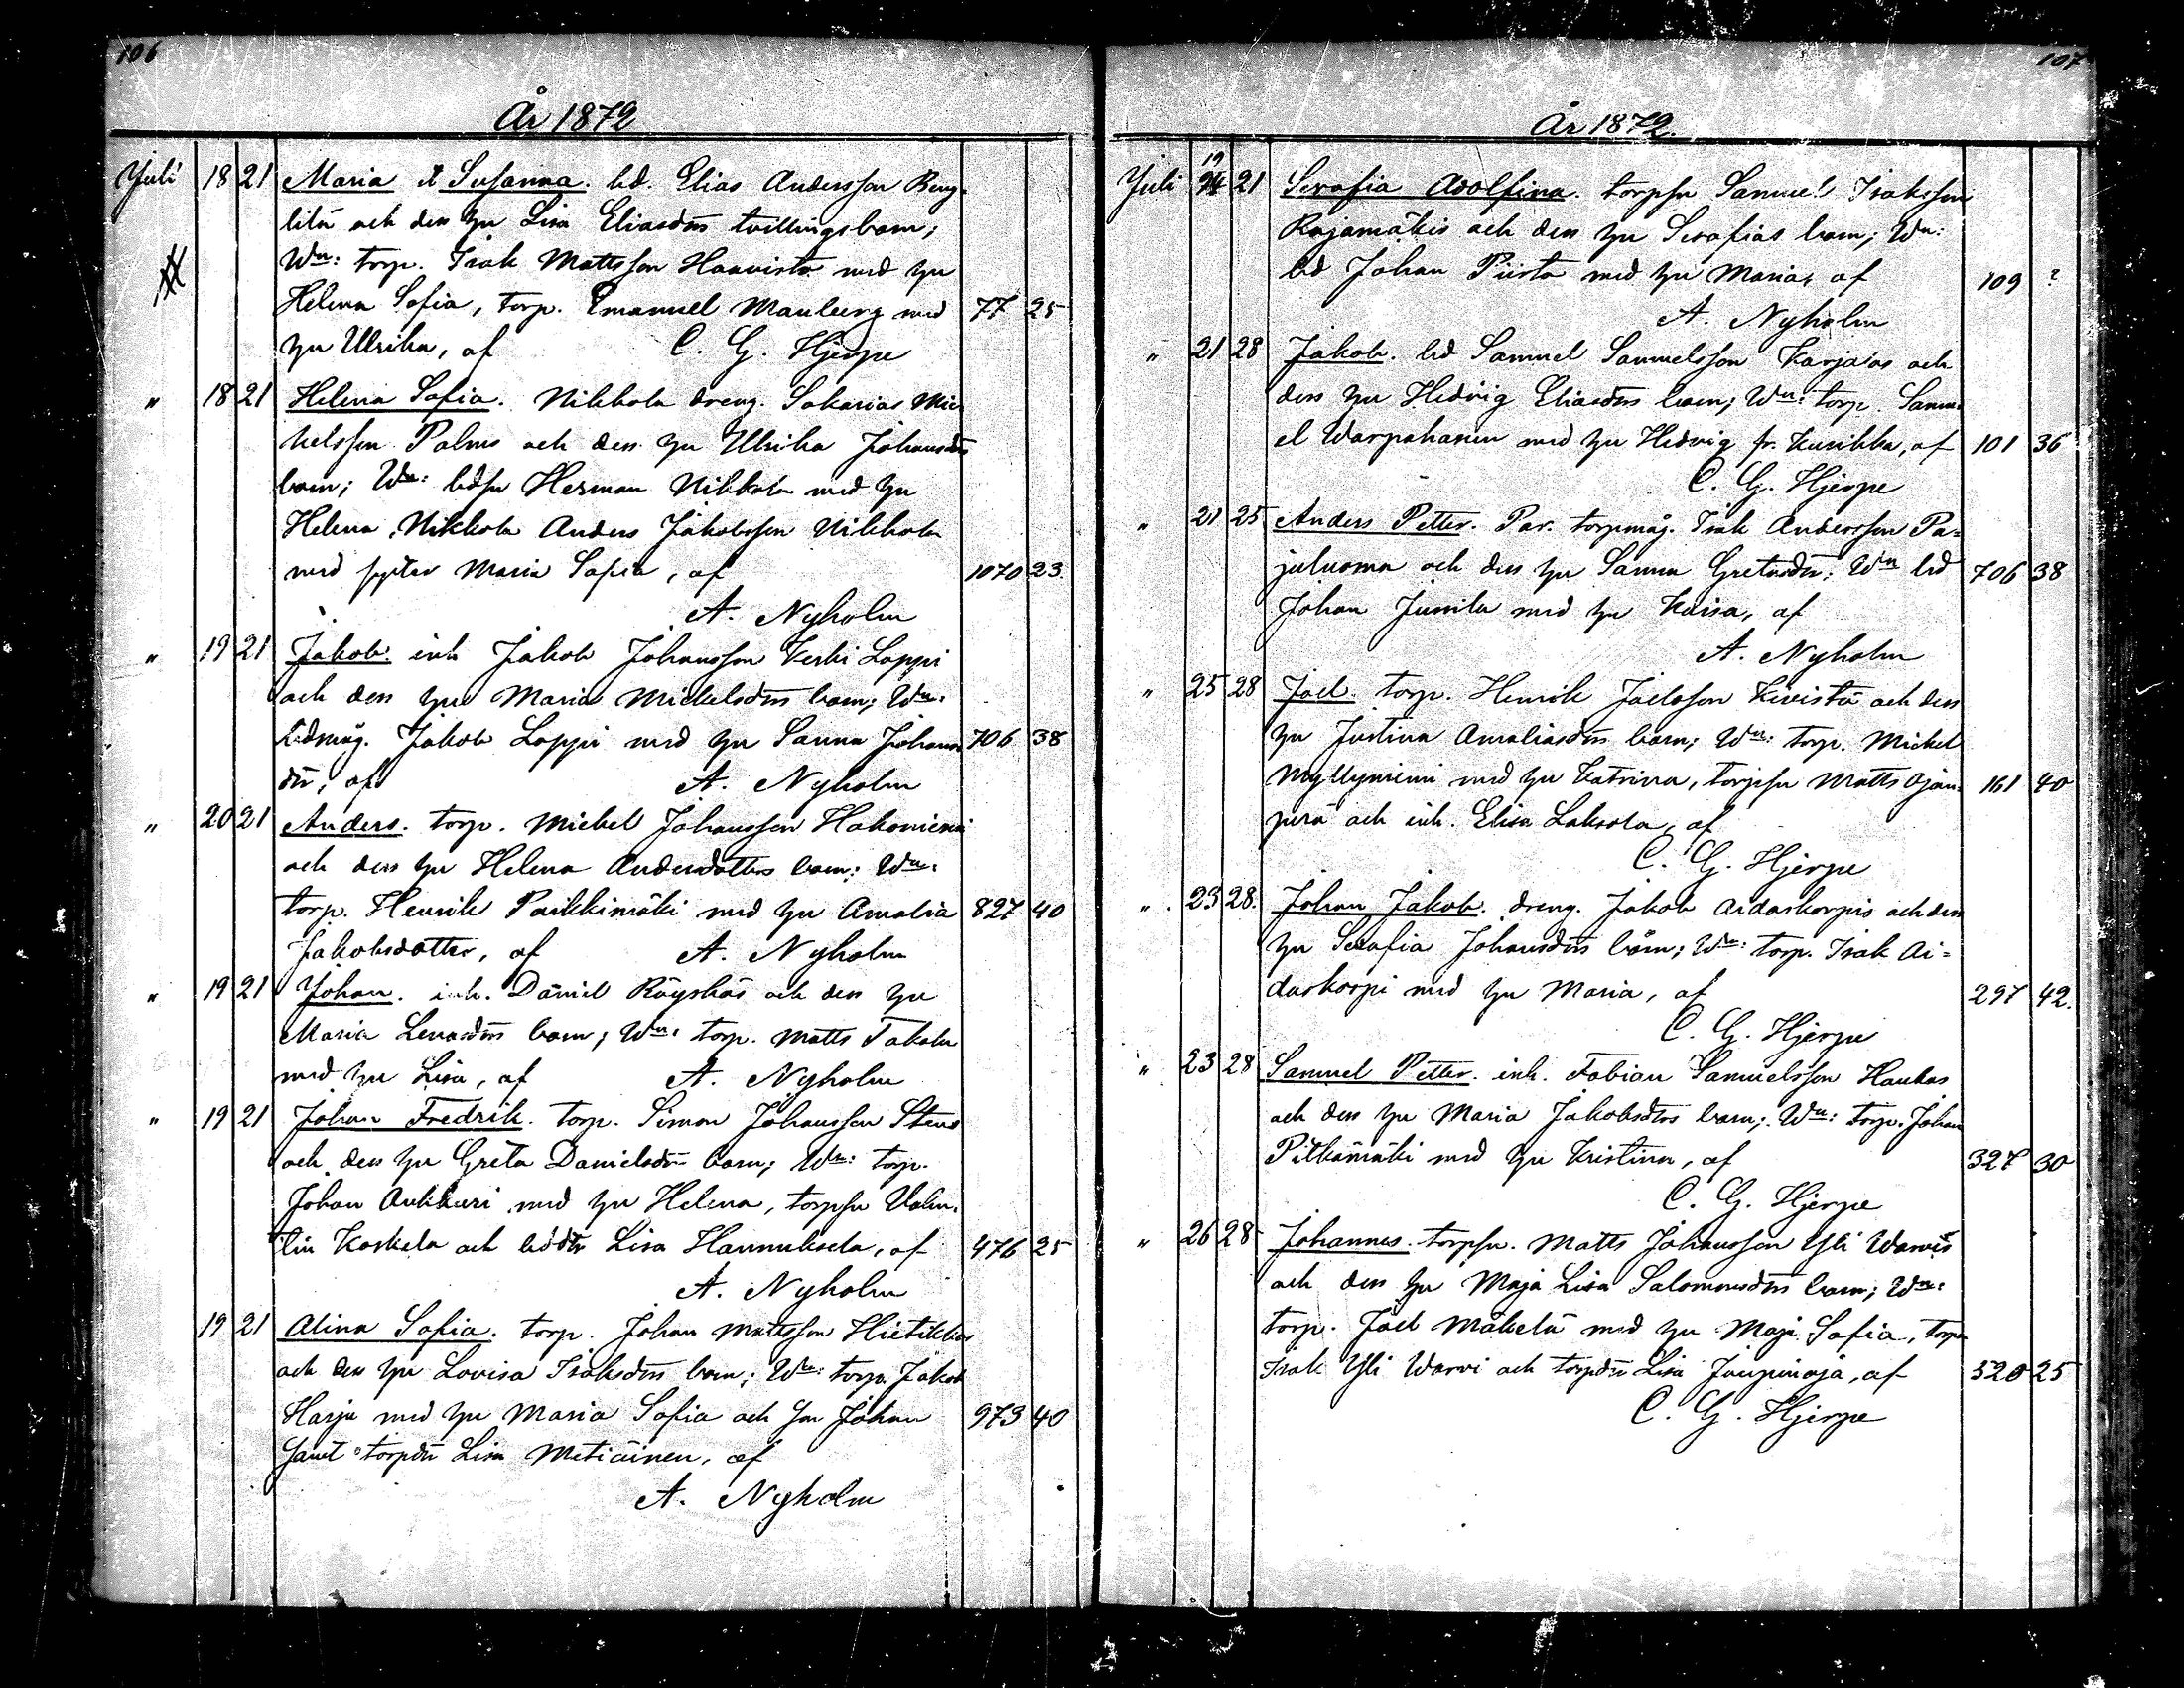 106
År 1872
Juli 18 21 Maria & Susanna. bd. Elias Andersson Beng-
litu och dess hu Lisa Eliasdrs tvillingsbarn;
Wn: torp. Isak Mattsson Haavisto med hu
Helena Sofia, torp. Emanuel Mauberg med 77 25
hu Ulrika, af C. G. Hjerpe
" 18 21 Helena Sofia. Nikkola dreng. Sakarias Mic
kelsson Palms och dess hu Ulrika Johansdrs
barn; Wn: bdsn Herman Nikkola med hu
Helena, Nikkola Anders Jakobsson Nikkola
med syster Maria Sofia, af 1070 23
A. Nyholm
" 19 21 Jakob. inh Jakob Johansson Keski Loppi
och dess hu Maria Mickelsdrs barn; Wn:
bdmåg. Jakob Loppi med hu Sanna Johans 706 38
dr, af A. Nyholm
" 20 21 Anders. torp. Mickel Johansson Hakoniemi
och dess hu Helena Andersdotters barn; Wn:
torp. Henrik Paikkimäki med hu Amalia 827 40
Jakobsdotter, af A. Nyholm
" 19 21 Johan. inh. Daniel Röyskös och dess hu
Maria Lenasdrs barn; Wn: torp. Matts Takala
med hu Lisa, af A. Nyholm
" 19 21 Johan Fredrik. torp. Simon Johansson Stens
och dess hu Greta Danielsdrs barn; Wn: torp.
Johan Aukkuri med hu Helena, torpsn Valen-
tin Koskela och bddtr Lisa Hannuksela, af 476 25
A. Nyholm
19 21 Alina Sofia. torp. Johan Mattsson Hietikkos
och dess hu Lovisa Isaksdrs barn; Wn: torp. Jakob
Harju med hu Maria Sofia och sn Johan 973 40
samt torpdr Lisa Metiäinen, af
A. Nyholm
107
År 1872.
Juli 19 21 Serafia Adolfina. torpsn Samuel Isaksson
Rajamäkis och dess hu Serafias barn; Wn:
bd Johan Piirto med hu Maria, af 109 ?
A. Nyholm
" 21 28 Jakob. bd Samuel Samuelsson Karjaas och
dess hu Hedvig Eliasdrs barn; Wn: torp. Samu-
el Warpahanen med hu Hedvig fr. Kurikka, af 101 36
C. G. Hjerpe
" 21 25 Anders Petter. Par. torpmåg. Isak Andersson Pa=
juluoma och dess hu Sanna Gretasdr; Wn bd 706 38
Johan Junila med hu Kaisa, af
A. Nyholm
" 25 28 Joel. torp. Henrik Joelsson Kivistö och dess
hu Justina Amaliasdrs barn; Wn: torp. Mickel
Myllyniemi med hu Katrina, torpsn Matts Ojan- 161 40
perä och inh. Elisa Laksola, af
C. G. Hjerpe
" 23 28. Johan Jakob. dreng. Jakob Aidaskorpis och dess
hu Serafia Johansdrs barn; Wn: torp. Isak Ai=
daskorpi med hu Maria, af 297 42.
C. G. Hjerpe
" 23 28 Samuel Petter. inh. Fabian Samuelsson Haukas
och dess hu Maria Jakobsdrs barn; Wn: torp. Johan
Pitkämäki med hu Kristina, af 327 30
C. G. Hjerpe
" 26 28 Johannes. torpsn. Matts Johansson Yli Warvis
och dess hu Maja Lisa Salomonsdrs barn; Wn:
torp. Joel Mäkelä med hu Maja Sofia, torpsn
Isak Yli Warvi och torpdr Lisa Jaupinoja, af 520 25
C. G. Hjerpe